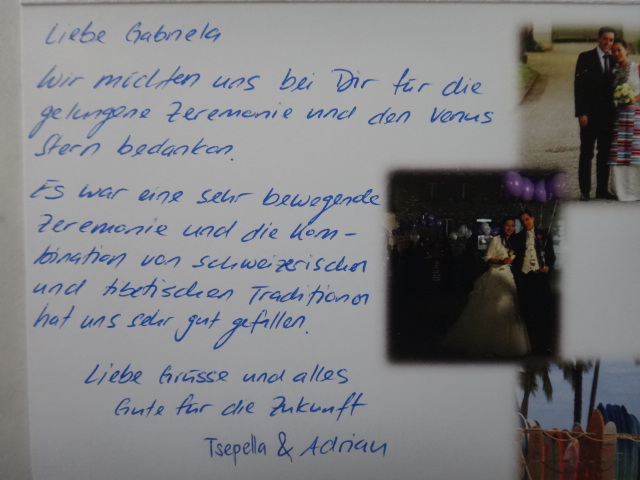 Liebe Gabriela
Wir möchten uns bei Dir für die
gelungene Zeremonie und den Venus
Stern bedanken.
Es war eine sehr bewegende
Zeremonie und die Kom-
bination von schweizerischen
und tibetischen Traditionen
hat uns sehr gut gefallen.
Liebe Grüsse und alles
Gute für die Zukunft
Tsepella & Adrian